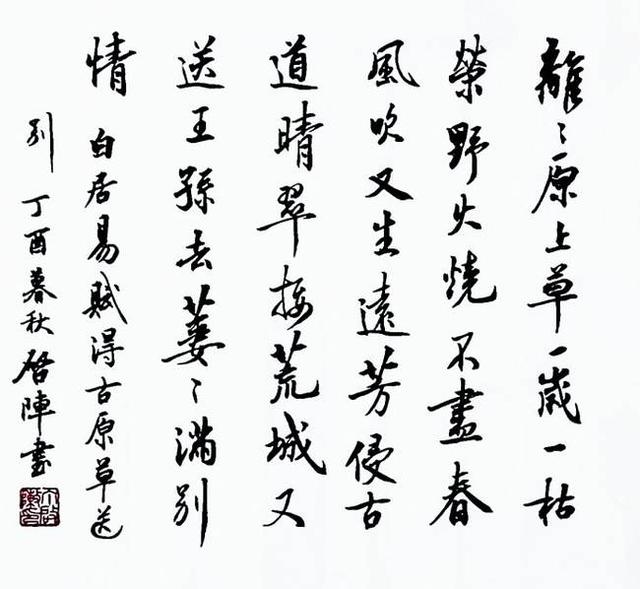 離〻原上草一歲一枯
榮野火燒不盡春
風吹又生遠芳侵古
道晴翠接荒城又
送王孫去萋〻滿別
情 白居易賦得古原草送
別 丁酉暮秋 啓陣書